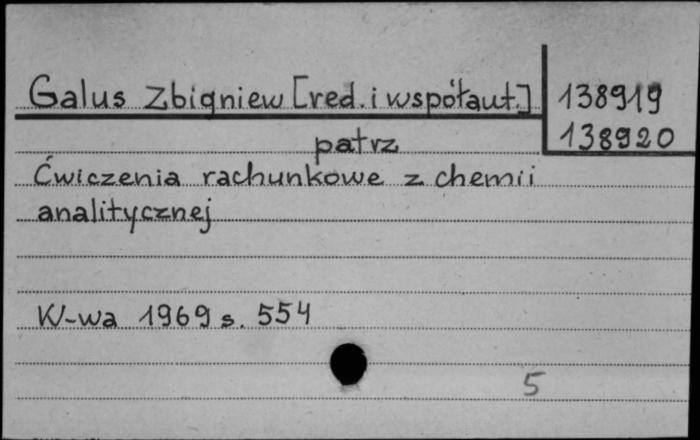 Galus Zbigniew [red. i współaut.] 138919
138920
patrz
Ćwiczenia rachunkowe z chemii
analitycznej
W-wa 1969 s. 554
5